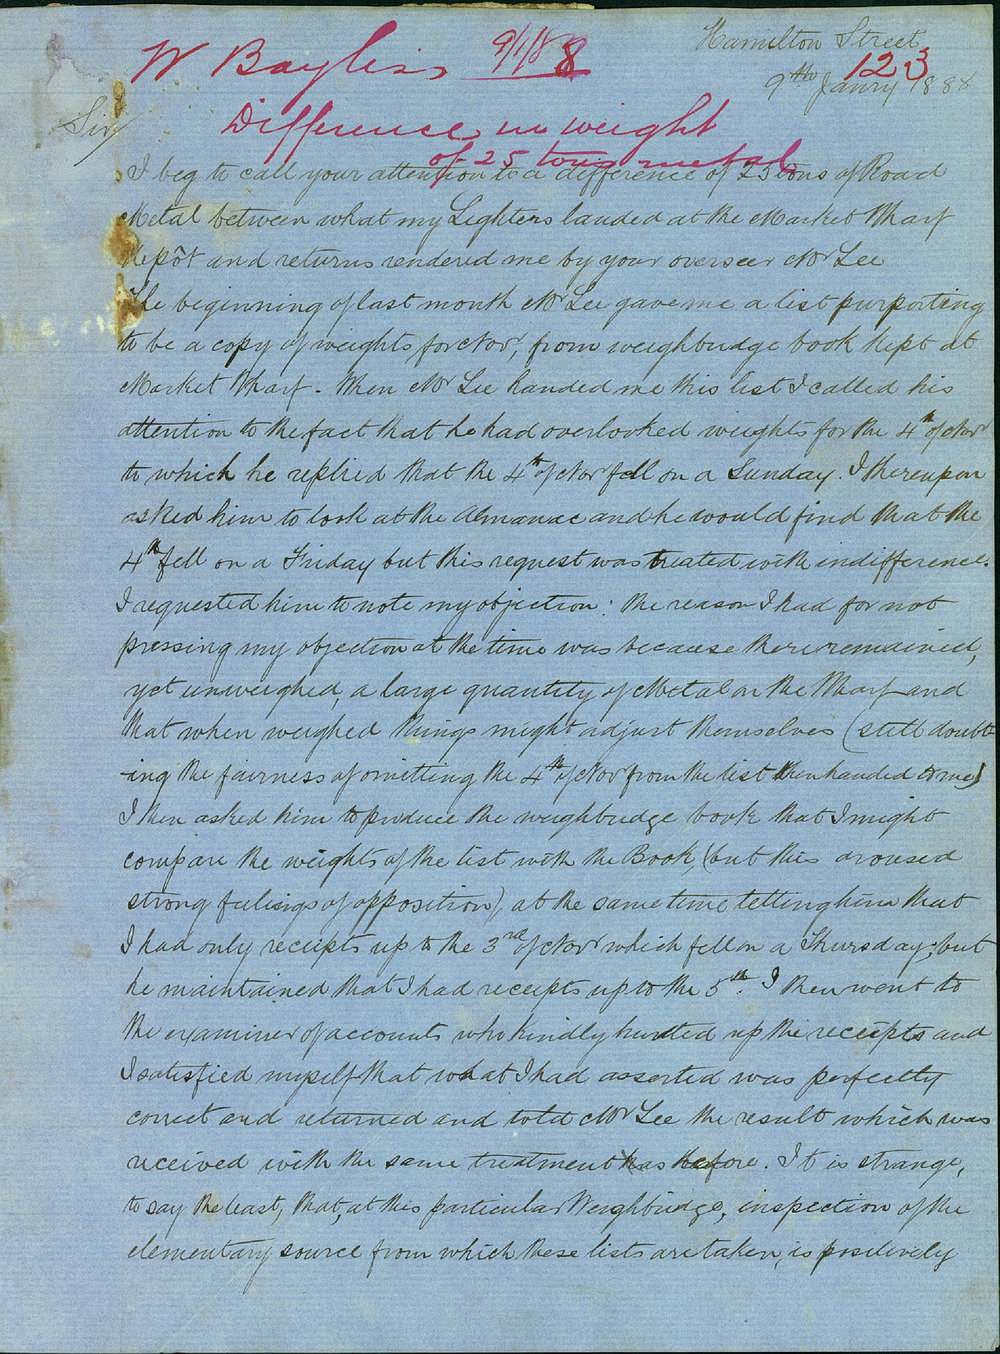 W Bayliss 9/1/88
Hamilton Street
123
9th Janry 1888
Difference in weight
of 25 tons metal
Sir/
I beg to call your attention to a difference of 25 tons of Road
Metal between what my Lighters landed at the Market Wharf
depôt and returns rendered me by your overseer Mr Lee
The beginning of last month Mr Lee gave me a list purporting
to be a copy of weights for Novr, from weighbridge book kept at
Market Wharf. When Mr Lee handed me this list I called his
attention to the fact that he had overlooked weights for the 4th of Novr
to which he replied that the 4th of Novr fell on a Sunday. I thereupon
asked him to look at the Almanac and he would find that the
4th fell on a Friday but this request was treated with indifference.
I requested him to note my objection: the reason I had for not
pressing my objection at the time was because there remained,
yet unweighed, a large quantity of Metal on the Wharf and
that when weighed things might adjust themselves (still doubt-
-ing the fairness of omitting the 4th of Novr from the list then handed to me)
I then asked him to produce the weighbridge book that I might
compare the weights of the list with the Book, (but this aroused
strong feelings of opposition), at the same time telling him that
I had only receipts up to the 3rd of Novr which fell on a Thursday; but
he maintained that I had receipts up to the 5th. I then went to
the examiner of accounts who kindly hunted up the receipts and
I satisfied myself that what I had asserted was perfectly
correct and returned and told Mr Lee the result which was
received with the same treatment as before. It is strange,
to say the least, that, at this particular Weighbridge, inspection of the
elementary source from which these lists are taken, is positively